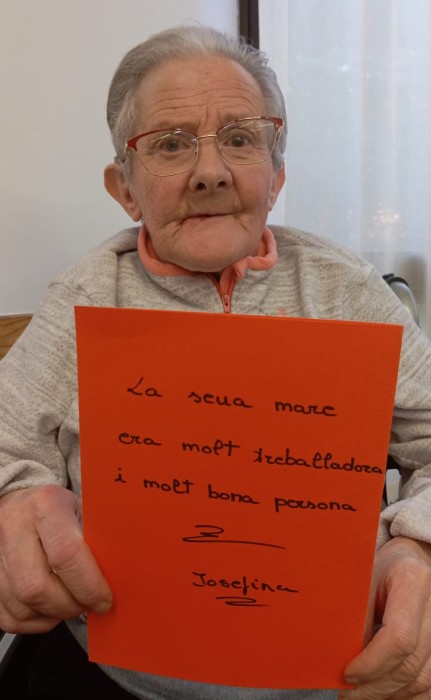 La seua mare
era molt treballadora
i molt bona persona
Josefina